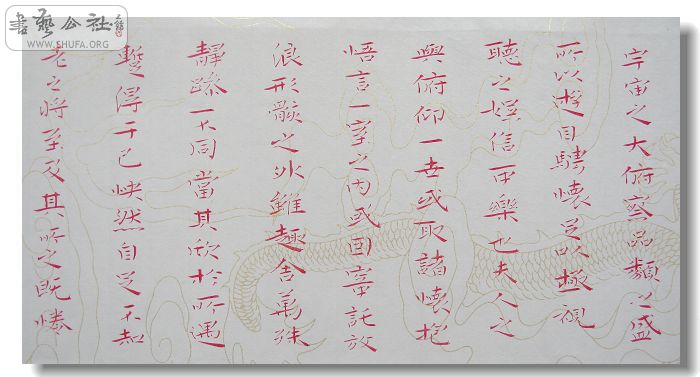 書藝公社
WWW.SHUFA.ORG
宇宙之大俯察品類之盛
所以遊目騁懷足以極視
聽之娛信可樂也夫人之
與俯仰一世或取諸懷抱
悟言一室之內或因寄託放
浪形骸之外雖趣舍萬殊
靜躁不同當其欣於所遇
蹔得于己快然自足不知
老之將至及其所之既惓